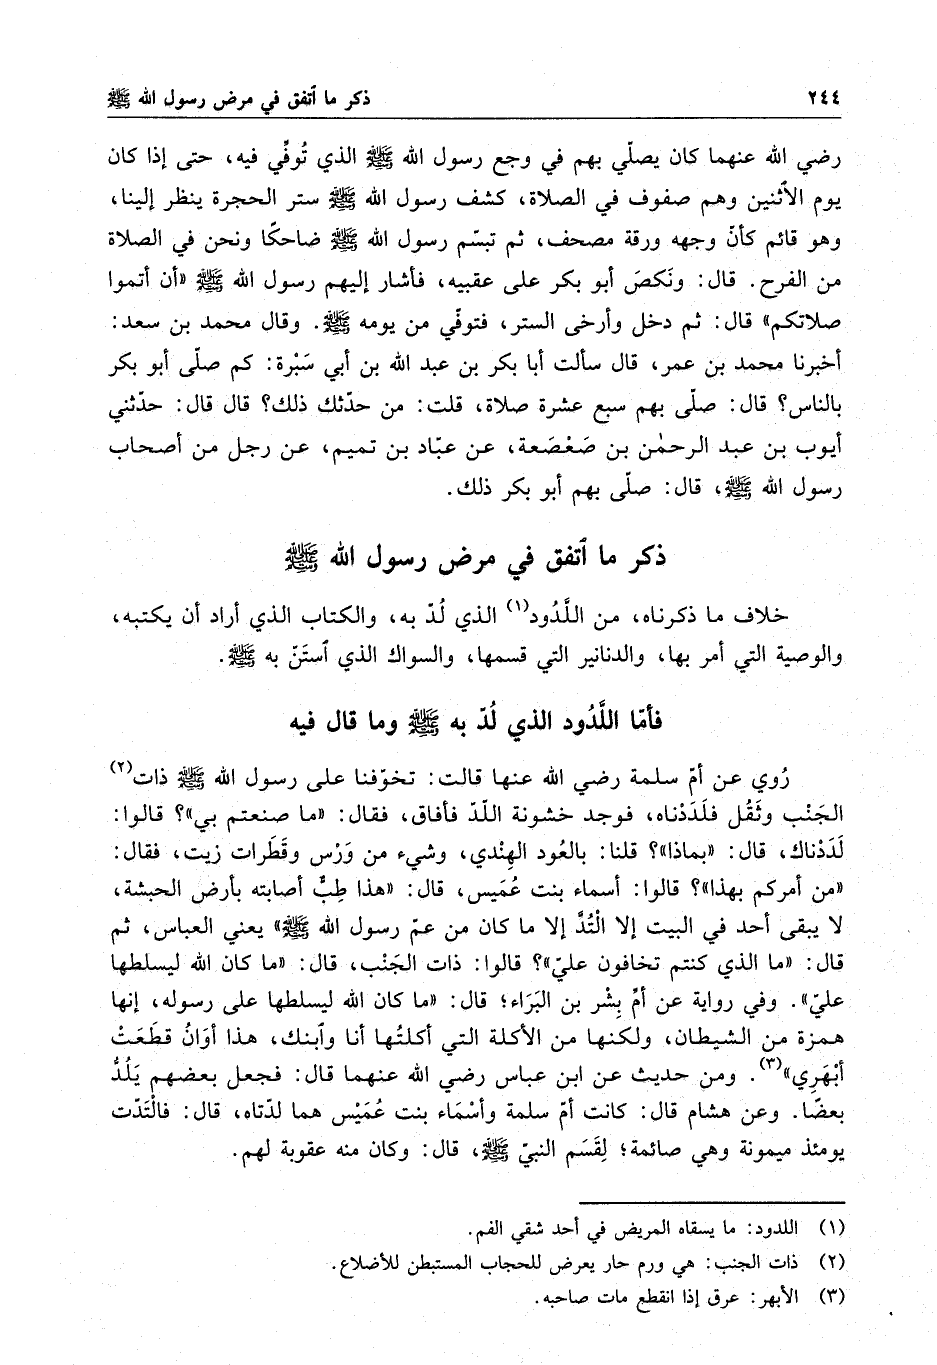 ٢٤٤ ذكر ما ٱتفق في مرض رسول الله ﷺ
رضي الله عنهما كان يصلّي بهم في وجع رسول الله ﷺ الذي تُوفِّي فيه، حتى إذا كان
يوم الأثنين وهم صفوف في الصلاة، كشف رسول الله ﷺ ستر الحجرة ينظر إلينا،
وهو قائم كأنّ وجهه ورقة مصحف، ثم تبسّم رسول الله ﷺ ضاحكًا ونحن في الصلاة
من الفرح. قال: ونَكصَ أبو بكر على عقبيه، فأشار إليهم رسول الله ﷺ «أن أتموا
صلاتكم» قال: ثم دخل وأرخى الستر، فتوفّي من يومه ﷺ. وقال محمد بن سعد:
أخبرنا محمد بن عمر، قال سألت أبا بكر بن عبد الله بن أبي سَبْرة: كم صلّى أبو بكر
بالناس؟ قال: صلّى بهم سبع عشرة صلاة، قلت: من حدّثك ذلك؟ قال قال: حدّثني
أيوب بن عبد الرحمٰن بن صَعْصَعة، عن عبّاد بن تميم، عن رجل من أصحاب
رسول الله ﷺ، قال: صلّى بهم أبو بكر ذلك.
ذكر ما ٱتفق في مرض رسول الله ﷺ
خلاف ما ذكرناه، من اللَّدُود(١) الذي لُدّ به، والكتاب الذي أراد أن يكتبه،
والوصية التي أمر بها، والدنانير التي قسمها، والسواك الذي ٱستَنّ به ﷺ.
فأمّا اللَّدُود الذي لُدّ به ﷺ وما قال فيه
رُوي عن أمّ سلمة رضي الله عنها قالت: تخوّفنا على رسول الله ﷺ ذات(٢)
الجَنْب وثَقُل فلَدَدْناه، فوجد خشونة اللّدّ فأفاق، فقال: «ما صنعتم بي»؟ قالوا:
لَدَدْناك، قال: «بماذا»؟ قلنا: بالعُود الهِنْدي، وشيء من وَرْس وقَطَرات زيت، فقال:
«من أمركم بهذا»؟ قالوا: أسماء بنت عُمَيس، قال: «هذا طِبٌّ أصابته بأرض الحبشة،
لا يبقى أحد في البيت إلا الْتُدَّ إلا ما كان من عمّ رسول الله ﷺ» يعني العباس، ثم
قال: «ما الذي كنتم تخافون عليّ»؟ قالوا: ذات الجَنْب، قال: «ما كان الله ليسلطها
عليّ». وفي رواية عن أمّ بِشْر بن البَرَاء؛ قال: «ما كان الله ليسلطها على رسوله، إنها
همزة من الشيطان، ولكنها من الأكلة التي أكلتُها أنا وٱبنك، هذا أوَانُ قطَعَتْ
أبْهَرِي»(٣). ومن حديث عن ابن عباس رضي الله عنهما قال: فجعل بعضهم يَلُدُّ
بعضًا. وعن هشام قال: كانت أمّ سلمة وأسْمَاء بنت عُمَيْس هما لدّتاه، قال: فالْتَدّت
يومئذ ميمونة وهي صائمة؛ لِقَسَم النبيّ ﷺ، قال: وكان منه عقوبة لهم.
(١) اللدود: ما يسقاه المريض في أحد شقي الفم.
(٢) ذات الجنب: هي ورم حار يعرض للحجاب المستبطن للأضلاع.
(٣) الأبهر: عرق إذا انقطع مات صاحبه.